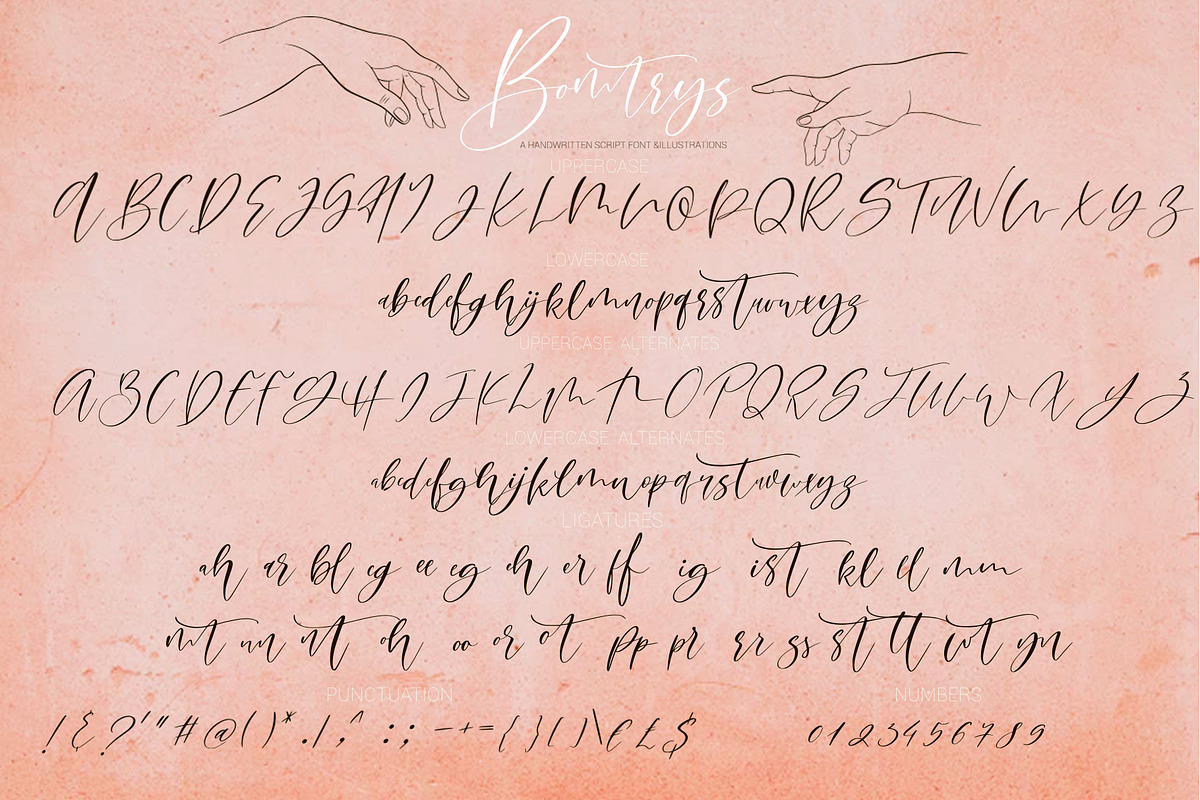 Bomtrys
A HANDWRITTEN SCRIPT FONT &ILLUSTRATIONS
UPPERCASE
A B C D E F G H I J K L M N O P Q R S T U V W X Y Z
LOWERCASE
abcdefghijklmnopqrstuvwxyz
UPPERCASE ALTERNATES
A B C D E F G H I J K L M N O P Q R S T U V W X Y Z
LOWERCASE ALTERNATES
abcdefghijklmnopqrstuvwxyz
LIGATURES
ah ar bl cg ee eg eh er ff ig ist kl ll mm
mt nn nt oh oo or ot pp pr rr ss st tt wt yn
PUNCTUATION NUMBERS
! & ? ' " " # @ ( ) * . / ; ^ : ; - + = { } [ ] \ € £ $ 0 1 2 3 4 5 6 7 8 9